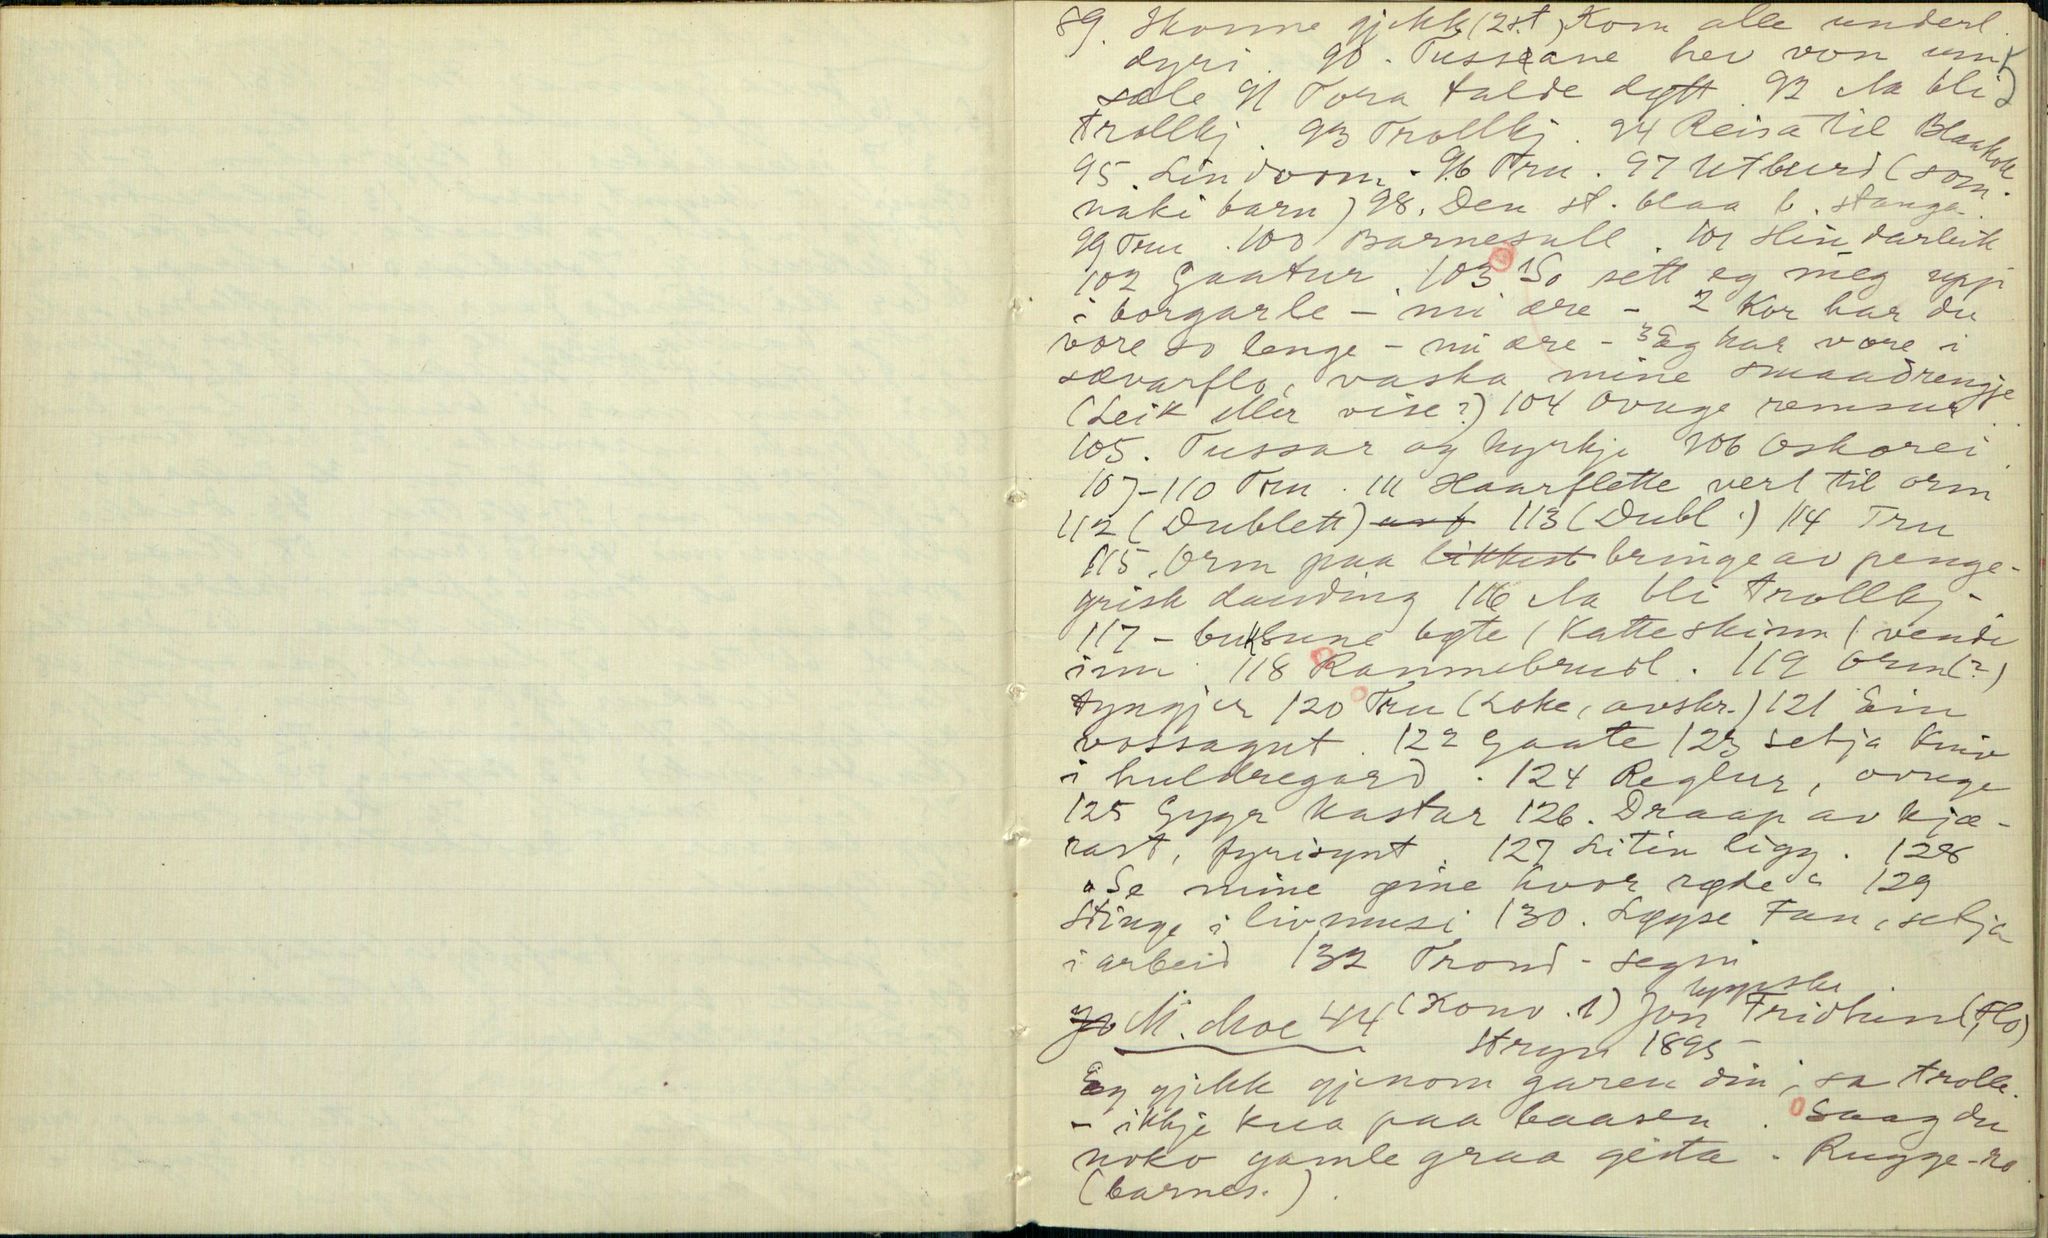 89. Konne gjekk (2 st.) Kom alle underl.
dyri. 90. Tussane hev von um
sæle 91 Tora talde dytt. 92 Aa bli
trollkj. 93 Trollkj. 94 Reisa til Blaakoll
95. Lindorm. 96 Tru. 97 Utburd (som.
naki barn) 98. Den st. blaa b. stanga.
99 Tru. 100 Barnesull. 101 Hindarleik
102 Gaatur. 103 1 So sett eg meg uppi
i borgarle - mi ære - 2 Kor har du
vore so lenge - mi ære - 3 Eg har vore i
sævarflo, vaska mine smaadrengje
(Leik eller vise?) 104 Ovuge remsur.
105. Tussar og kyrkje 106 Oskorei.
107-110 Tru. 111 Haarflette vert til orm
112 (Dublett) 113 (Dubl.) 114 Tru
115. Orm paa likkist bringe av penge-
grisk dauding 116 Aa bli trollkj-
117 - buksune bøte (Katteskinn (vende
inn. 118 Rammebrudl. 119 Orm (?)
tyngjer 120 Tru (Loke, avskr.) 121 Ein
vossagut. 122 Gaate 123 Setja kniv
i huldregard. 124 Reglur, ovuge
125 Gygr kastar 126. Draap av kjæ-
rast, fyrisynt. 127 Litin ligg. 128
"Se mine øine hvor røde" 129
Stinge i livmusi 130. Løyse Fan, setja
i arbeid 132 Trond-segni
uppskr.
M. Moe 44 (Konv. 1) Jon Fridtun (Flo)
Stryn 1895
Eg gjekk gjenom garen din, sa trolle.
- ikkje kua paa baasen. Saag du
noko gamle graa geita. Rugge-ro
(barnes.).